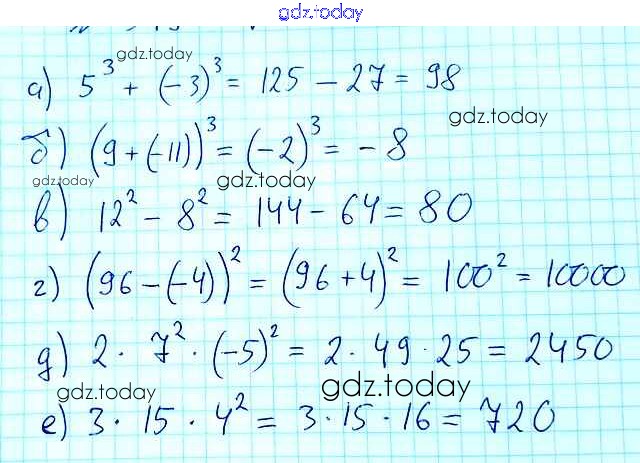 gdz.today
gdz.today
а) 5³ + (-3)³ = 125 - 27 = 98
gdz.today
б) (9 + (-11))³ = (-2)³ = - 8
gdz.today gdz.today
в) 12² - 8² = 144 - 64 = 80
г) (96 - (-4))² = (96 + 4)² = 100² = 10000
д) 2 · 7² · (-5)² = 2 · 49 · 25 = 2450
gdz.today gdz.today
е) 3 · 15 · 4² = 3 · 15 · 16 = 720